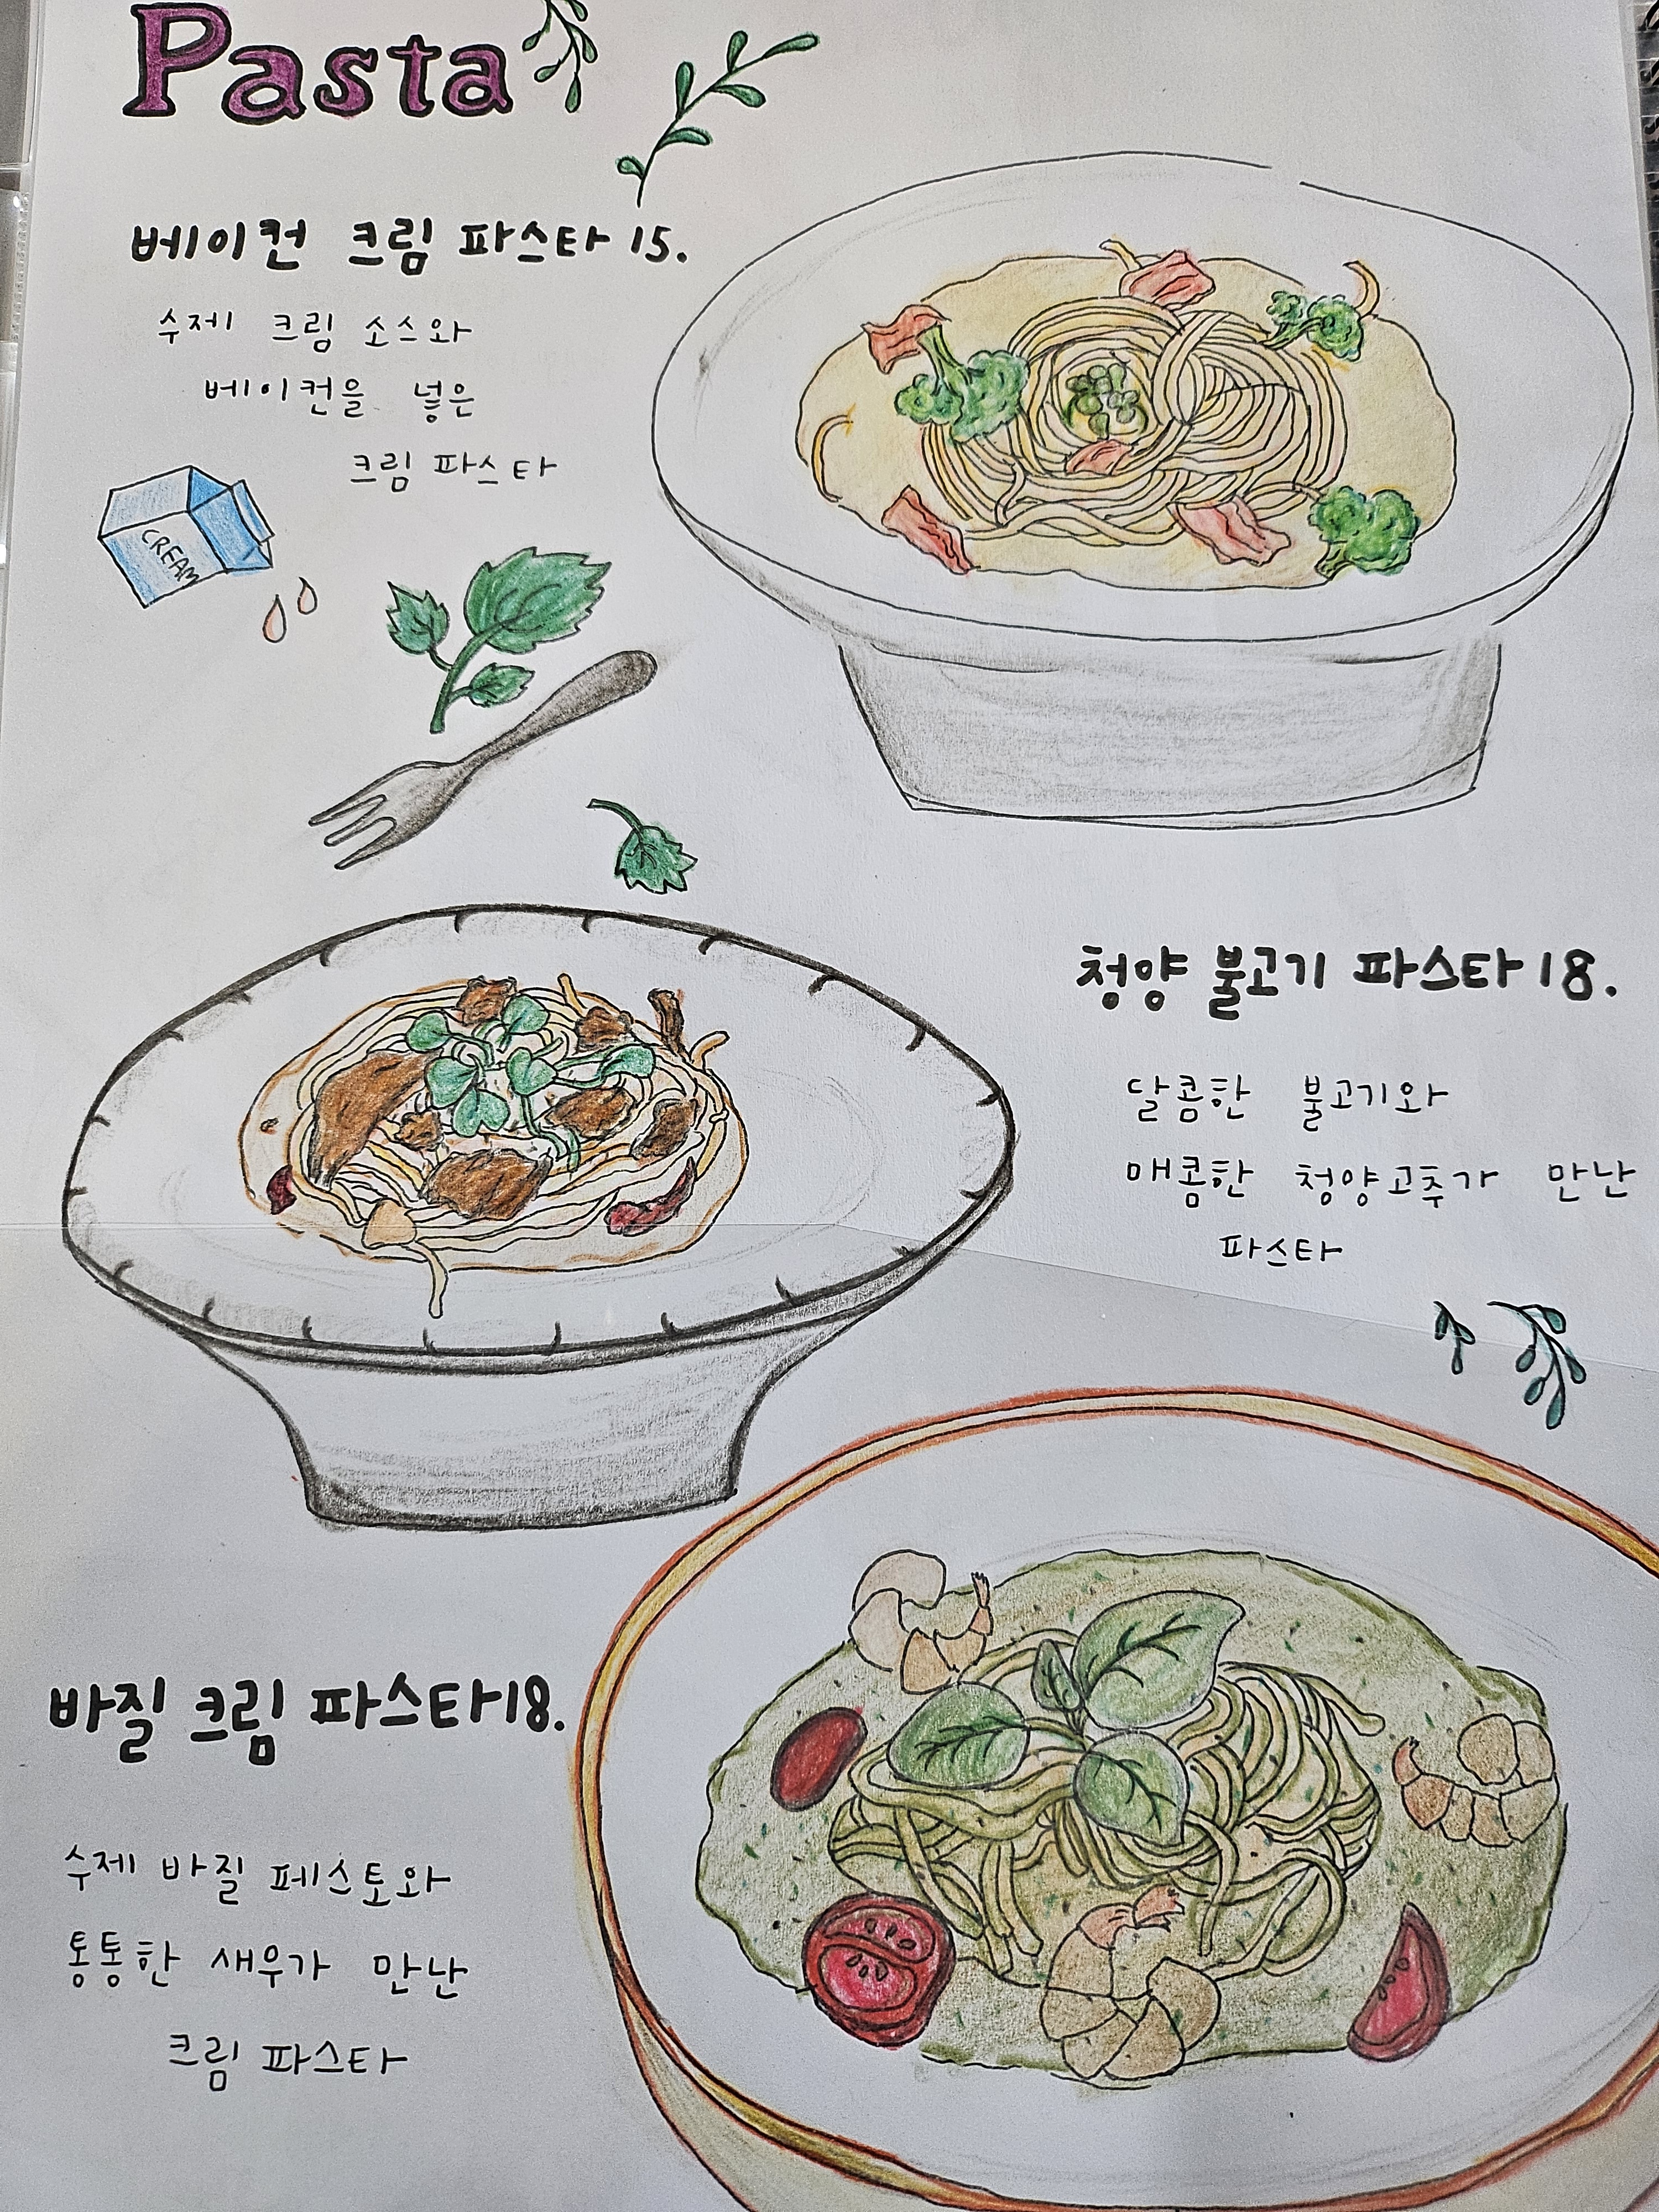 Pasta
베이컨 크림 파스타 15.
수제 크림 소스와
베이컨을 넣은
크림 파스타
CREAM
청양 불고기 파스타 18.
달콤한 불고기와
매콤한 청양고추가 만난
파스타
바질 크림 파스타 18.
수제 바질 페스토와
통통한 새우가 만난
크림 파스타